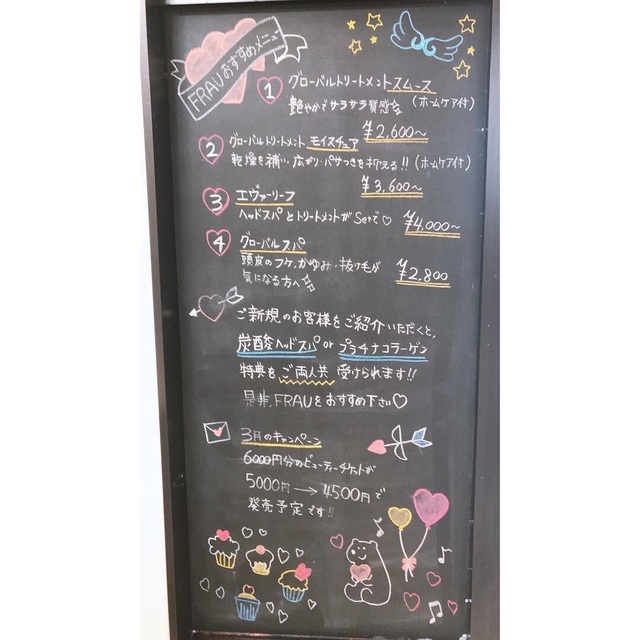 FRAUおすすめメニュー
1 グローバルトリートメントスムース
艶やかでサラサラ質感 (ホームケア付)
¥2,600~
2 グローバルトリートメント モイスチュア
乾燥を補い、広がり・パサつきを抑える!! (ホームケア付)
¥3,600~
3 エヴァーリーフ
ヘッドスパとトリートメントがSetで♡ ¥4,000~
4 グローバルスパ
頭皮のフケ、かゆみ・抜け毛が ¥2,800
気になる方へ
ご新規のお客様をご紹介いただくと、
炭酸ヘッドスパ or プラチナコラーゲン
特典をご両人共 受けられます!!
是非、FRAUをおすすめ下さい♡
3月のキャンペーン
6000円分のビューティーチケットが
5000円→4500円で
発売予定です!!